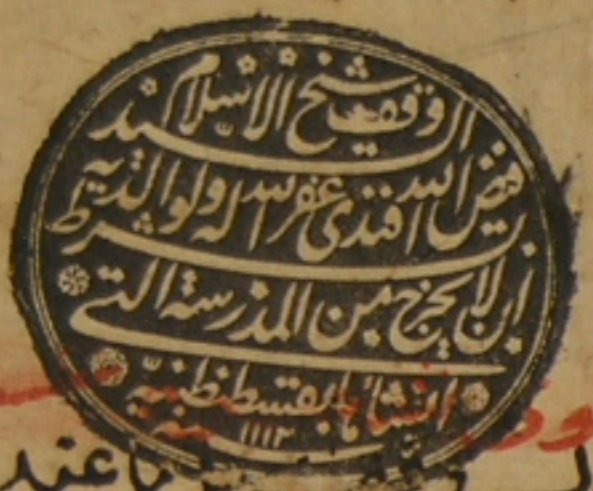 وقف شيخ الاسلام السيد
فيض الله افندى غفر الله له ولوالديه بشرط
ان لا يخرج من المدرسة التى
انشأها بقسطنطنيه
سنة ١١١٢